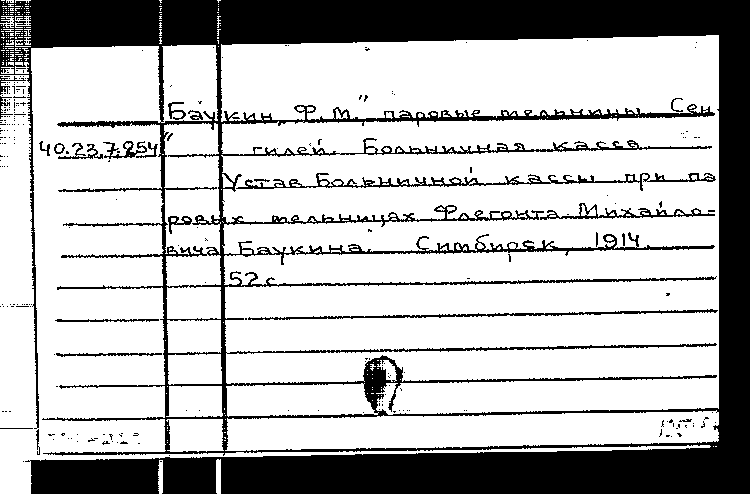 "Баукин, Ф.М.", паровые мельницы. Сен-
40.23.7.254 гилей. Больничная касса
Устав Больничной кассы при па
ровых мельницах Флегонта Михайло=
вича Баукина. Симбирск, 1914.
52 с.